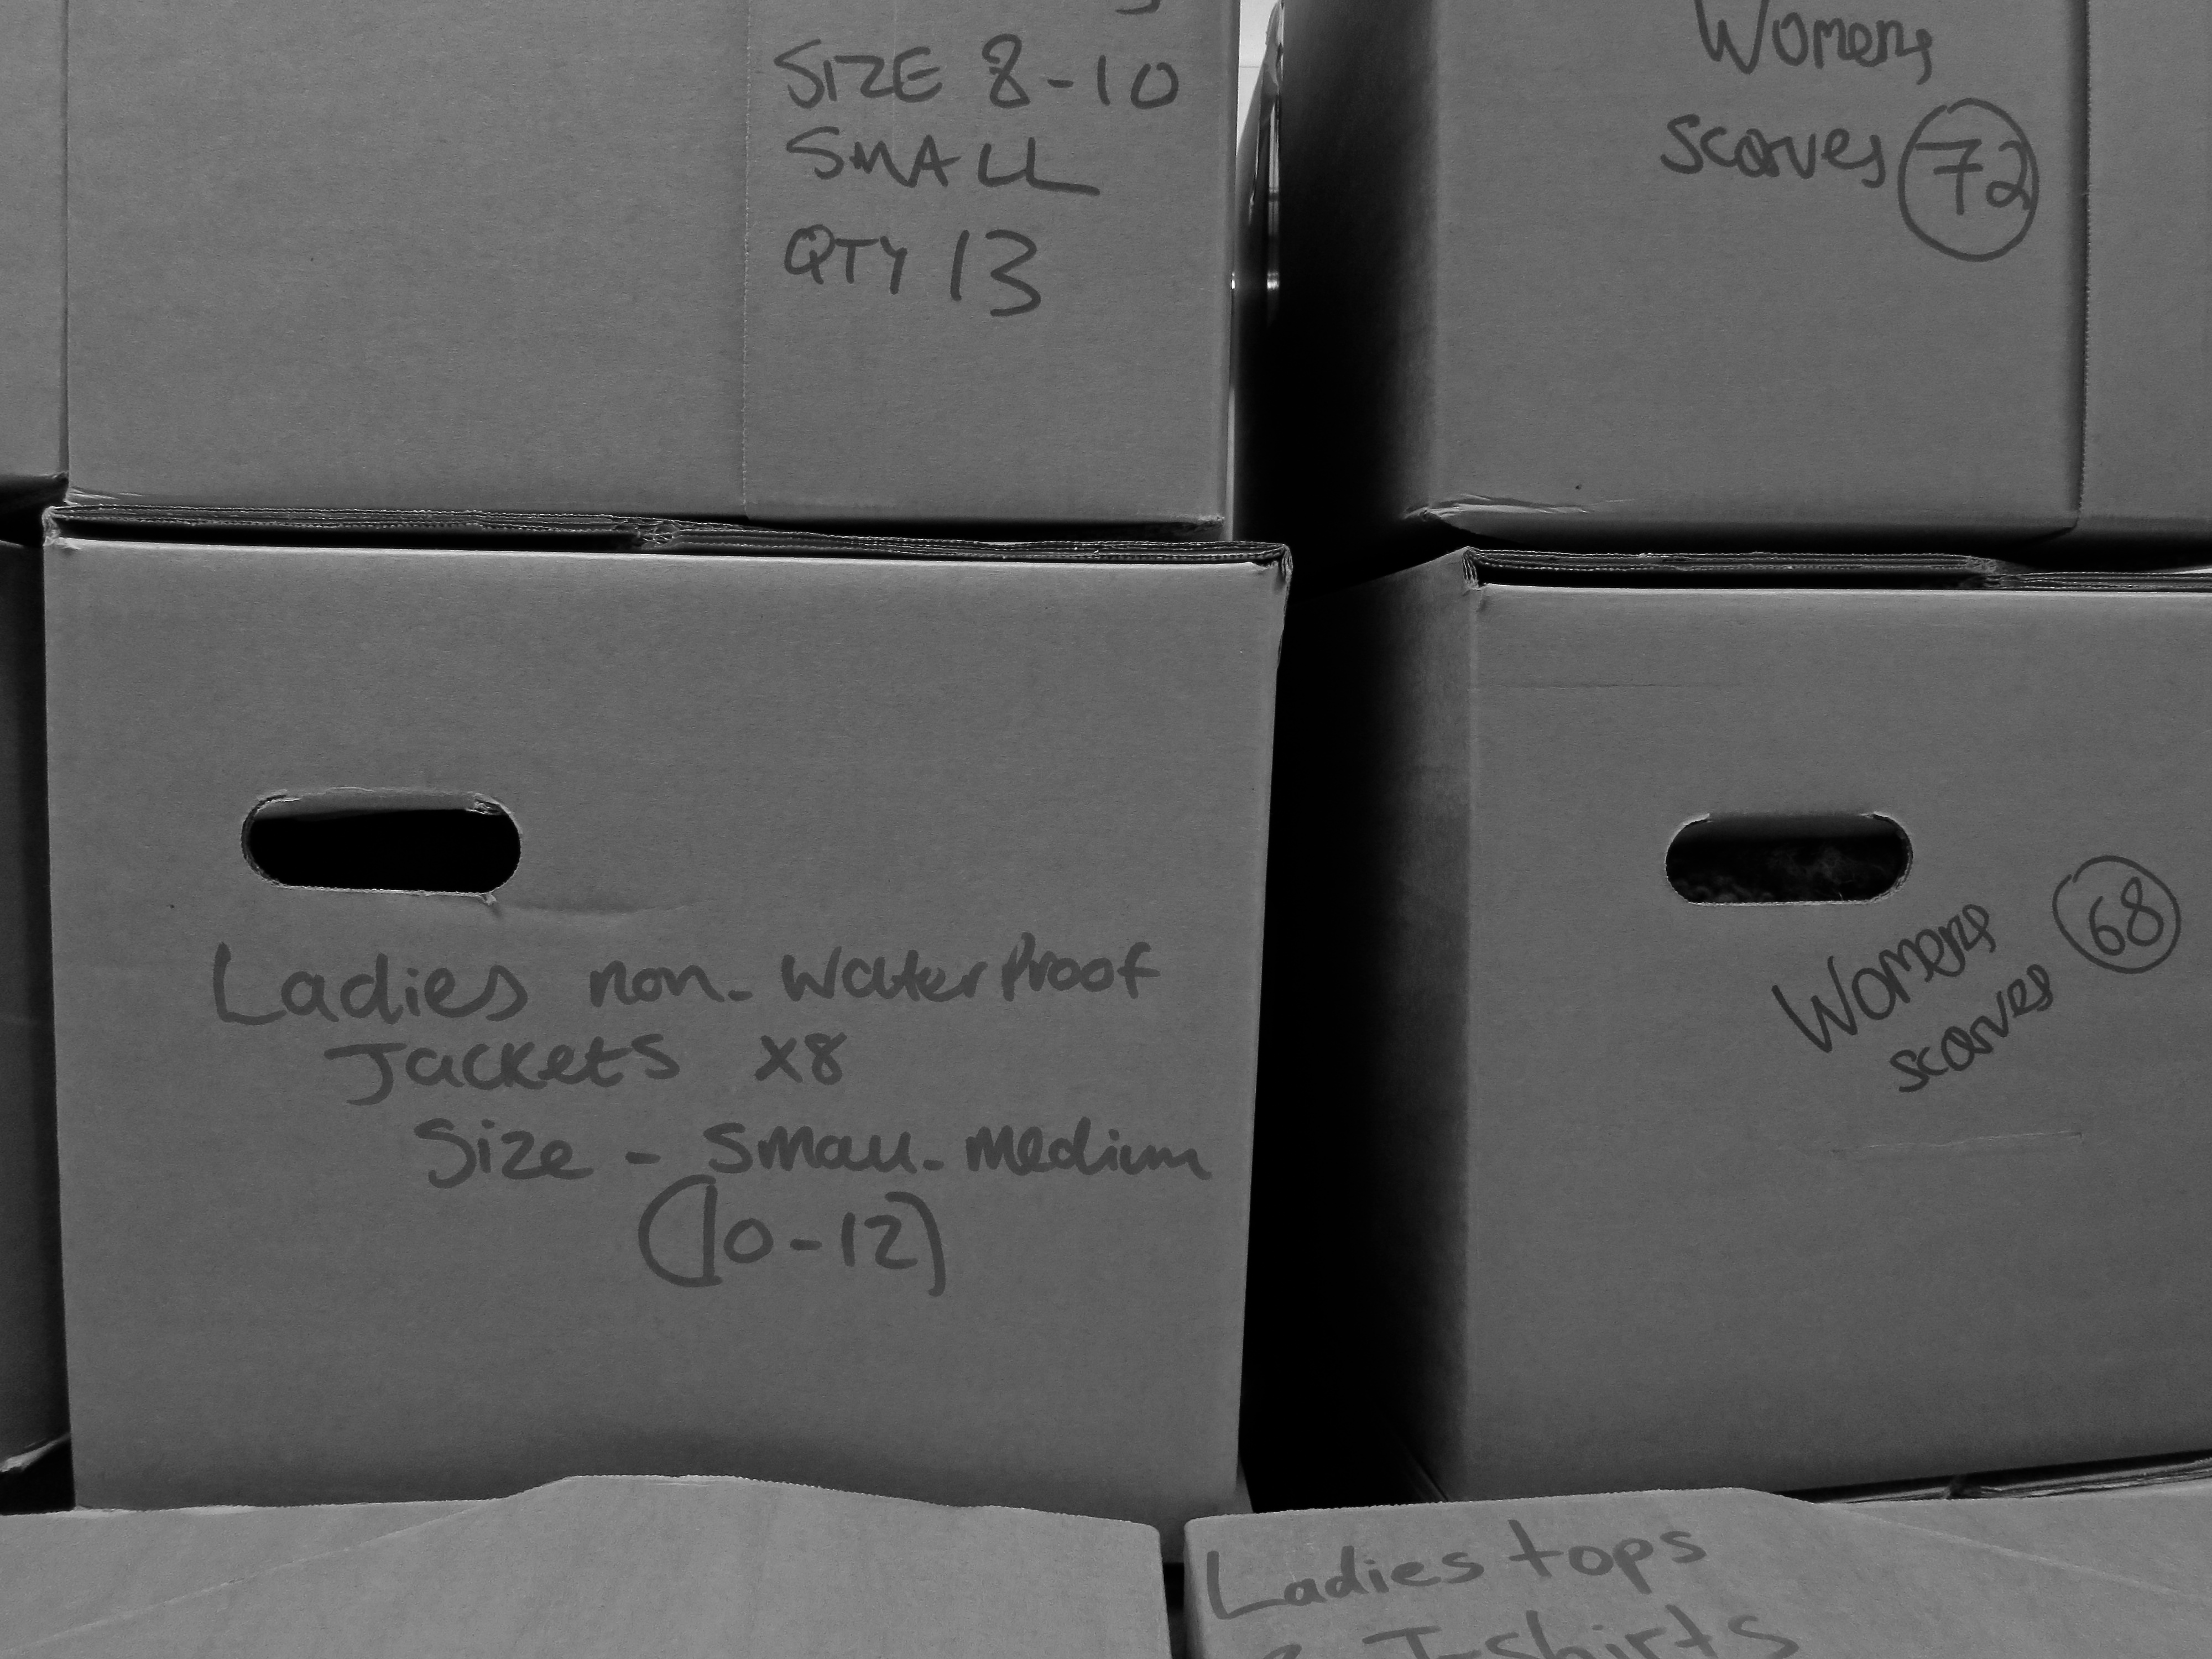 SIZE 8-10
SMALL
QTY 13
Womens
scarves 72
Ladies non-waterproof
Jackets x8
Size - small-medium
(10-12)
68
Womens
scarves
Ladies tops
T-shirts